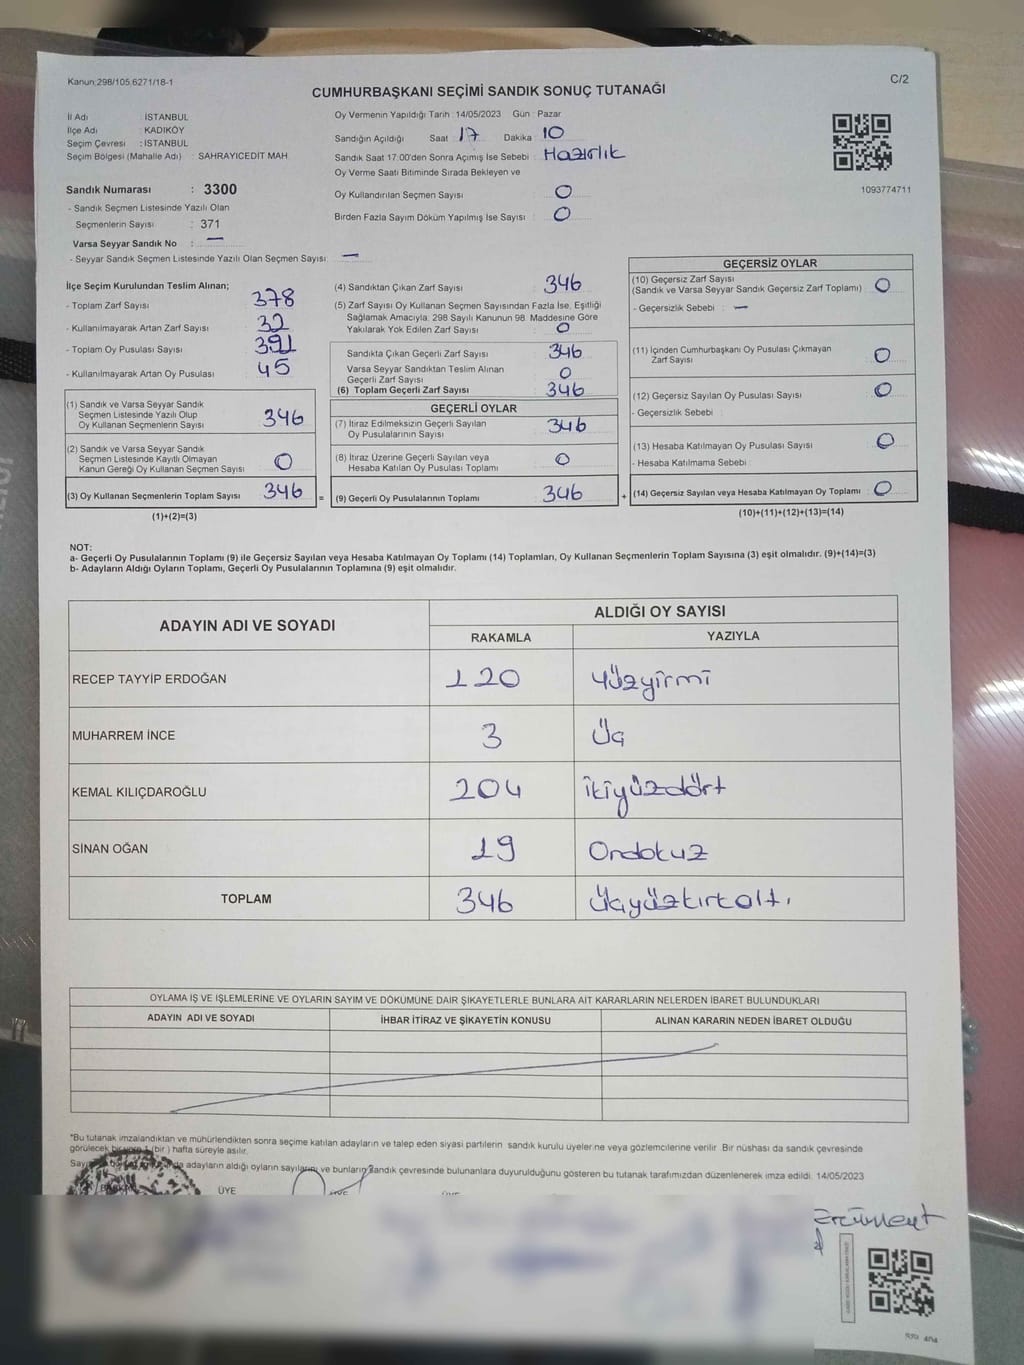 Kanun:298/105.6271/18-1
C/2
CUMHURBAŞKANI SEÇİMİ SANDIK SONUÇ TUTANAĞI
İl Adı : İSTANBUL
İlçe Adı : KADIKÖY
Seçim Çevresi : İSTANBUL
Seçim Bölgesi (Mahalle Adı) : SAHRAYICEDİT MAH
Sandık Numarası : 3300
- Sandık Seçmen Listesinde Yazılı Olan
Seçmenlerin Sayısı : 371
Varsa Seyyar Sandık No : —
- Seyyar Sandık Seçmen Listesinde Yazılı Olan Seçmen Sayısı : —
Oy Vermenin Yapıldığı Tarih : 14/05/2023 Gün : Pazar
Sandığın Açıldığı Saat 17 Dakika 10
Sandık Saat 17:00'den Sonra Açımış İse Sebebi : Hazırlık
Oy Verme Saati Bitiminde Sırada Bekleyen ve
Oy Kullandırılan Seçmen Sayısı : 0
Birden Fazla Sayım Döküm Yapılmış İse Sayısı : 0
1093774711
İlçe Seçim Kurulundan Teslim Alınan;
- Toplam Zarf Sayısı 378
- Kullanılmayarak Artan Zarf Sayısı 32
- Toplam Oy Pusulası Sayısı 391
- Kullanılmayarak Artan Oy Pusulası 45
(1) Sandık ve Varsa Seyyar Sandık
Seçmen Listesinde Yazılı Olup
Oy Kullanan Seçmenlerin Sayısı 346
(2) Sandık ve Varsa Seyyar Sandık
Seçmen Listesinde Kayıtlı Olmayan
Kanun Gereği Oy Kullanan Seçmen Sayısı 0
(3) Oy Kullanan Seçmenlerin Toplam Sayısı 346 =
(1)+(2)=(3)
(4) Sandıktan Çıkan Zarf Sayısı 346
(5) Zarf Sayısı Oy Kullanan Seçmen Sayısından Fazla İse, Eşitliği
Sağlamak Amacıyla; 298 Sayılı Kanunun 98. Maddesine Göre
Yakılarak Yok Edilen Zarf Sayısı 0
Sandıkta Çıkan Geçerli Zarf Sayısı 346
Varsa Seyyar Sandıktan Teslim Alınan
Geçerli Zarf Sayısı 0
(6) Toplam Geçerli Zarf Sayısı 346
GEÇERLİ OYLAR
(7) İtiraz Edilmeksizin Geçerli Sayılan
Oy Pusulalarının Sayısı 346
(8) İtiraz Üzerine Geçerli Sayılan veya
Hesaba Katılan Oy Pusulası Toplamı 0
(9) Geçerli Oy Pusulalarının Toplamı 346 +
GEÇERSİZ OYLAR
(10) Geçersiz Zarf Sayısı
(Sandık ve Varsa Seyyar Sandık Geçersiz Zarf Toplamı) 0
- Geçersizlik Sebebi : —
(11) İçinden Cumhurbaşkanı Oy Pusulası Çıkmayan
Zarf Sayısı 0
(12) Geçersiz Sayılan Oy Pusulası Sayısı 0
- Geçersizlik Sebebi :
(13) Hesaba Katılmayan Oy Pusulası Sayısı 0
- Hesaba Katılmama Sebebi :
(14) Geçersiz Sayılan veya Hesaba Katılmayan Oy Toplamı 0
(10)+(11)+(12)+(13)=(14)
NOT:
a- Geçerli Oy Pusulalarının Toplamı (9) ile Geçersiz Sayılan veya Hesaba Katılmayan Oy Toplamı (14) Toplamları, Oy Kullanan Seçmenlerin Toplam Sayısına (3) eşit olmalıdır. (9)+(14)=(3)
b- Adayların Aldığı Oyların Toplamı, Geçerli Oy Pusulalarının Toplamına (9) eşit olmalıdır.
ADAYIN ADI VE SOYADI
ALDIĞI OY SAYISI
RAKAMLA YAZIYLA
RECEP TAYYİP ERDOĞAN 120 Yüzyirmi
MUHARREM İNCE 3 Üç
KEMAL KILIÇDAROĞLU 204 ikiyüzdört
SİNAN OĞAN 19 Ondokuz
TOPLAM 346 Üçyüzkırkaltı
OYLAMA İŞ VE İŞLEMLERİNE VE OYLARIN SAYIM VE DÖKÜMÜNE DAİR ŞİKAYETLERLE BUNLARA AİT KARARLARIN NELERDEN İBARET BULUNDUKLARI
ADAYIN ADI VE SOYADI İHBAR İTİRAZ VE ŞİKAYETİN KONUSU ALINAN KARARIN NEDEN İBARET OLDUĞU
*Bu tutanak imzalandıktan ve mühürlendikten sonra seçime katılan adayların ve talep eden siyasi partilerin sandık kurulu üyelerine veya gözlemcilerine verilir. Bir nüshası da sandık çevresinde
görülecek bir yere 1 (bir) hafta süreyle asılır.
adayların aldığı oyların sayılarını ve bunların sandık çevresinde bulunanlara duyurulduğunu gösteren bu tutanak tarafımızdan düzenlenerek imza edildi. 14/05/2023
ÜYE
Ercüment